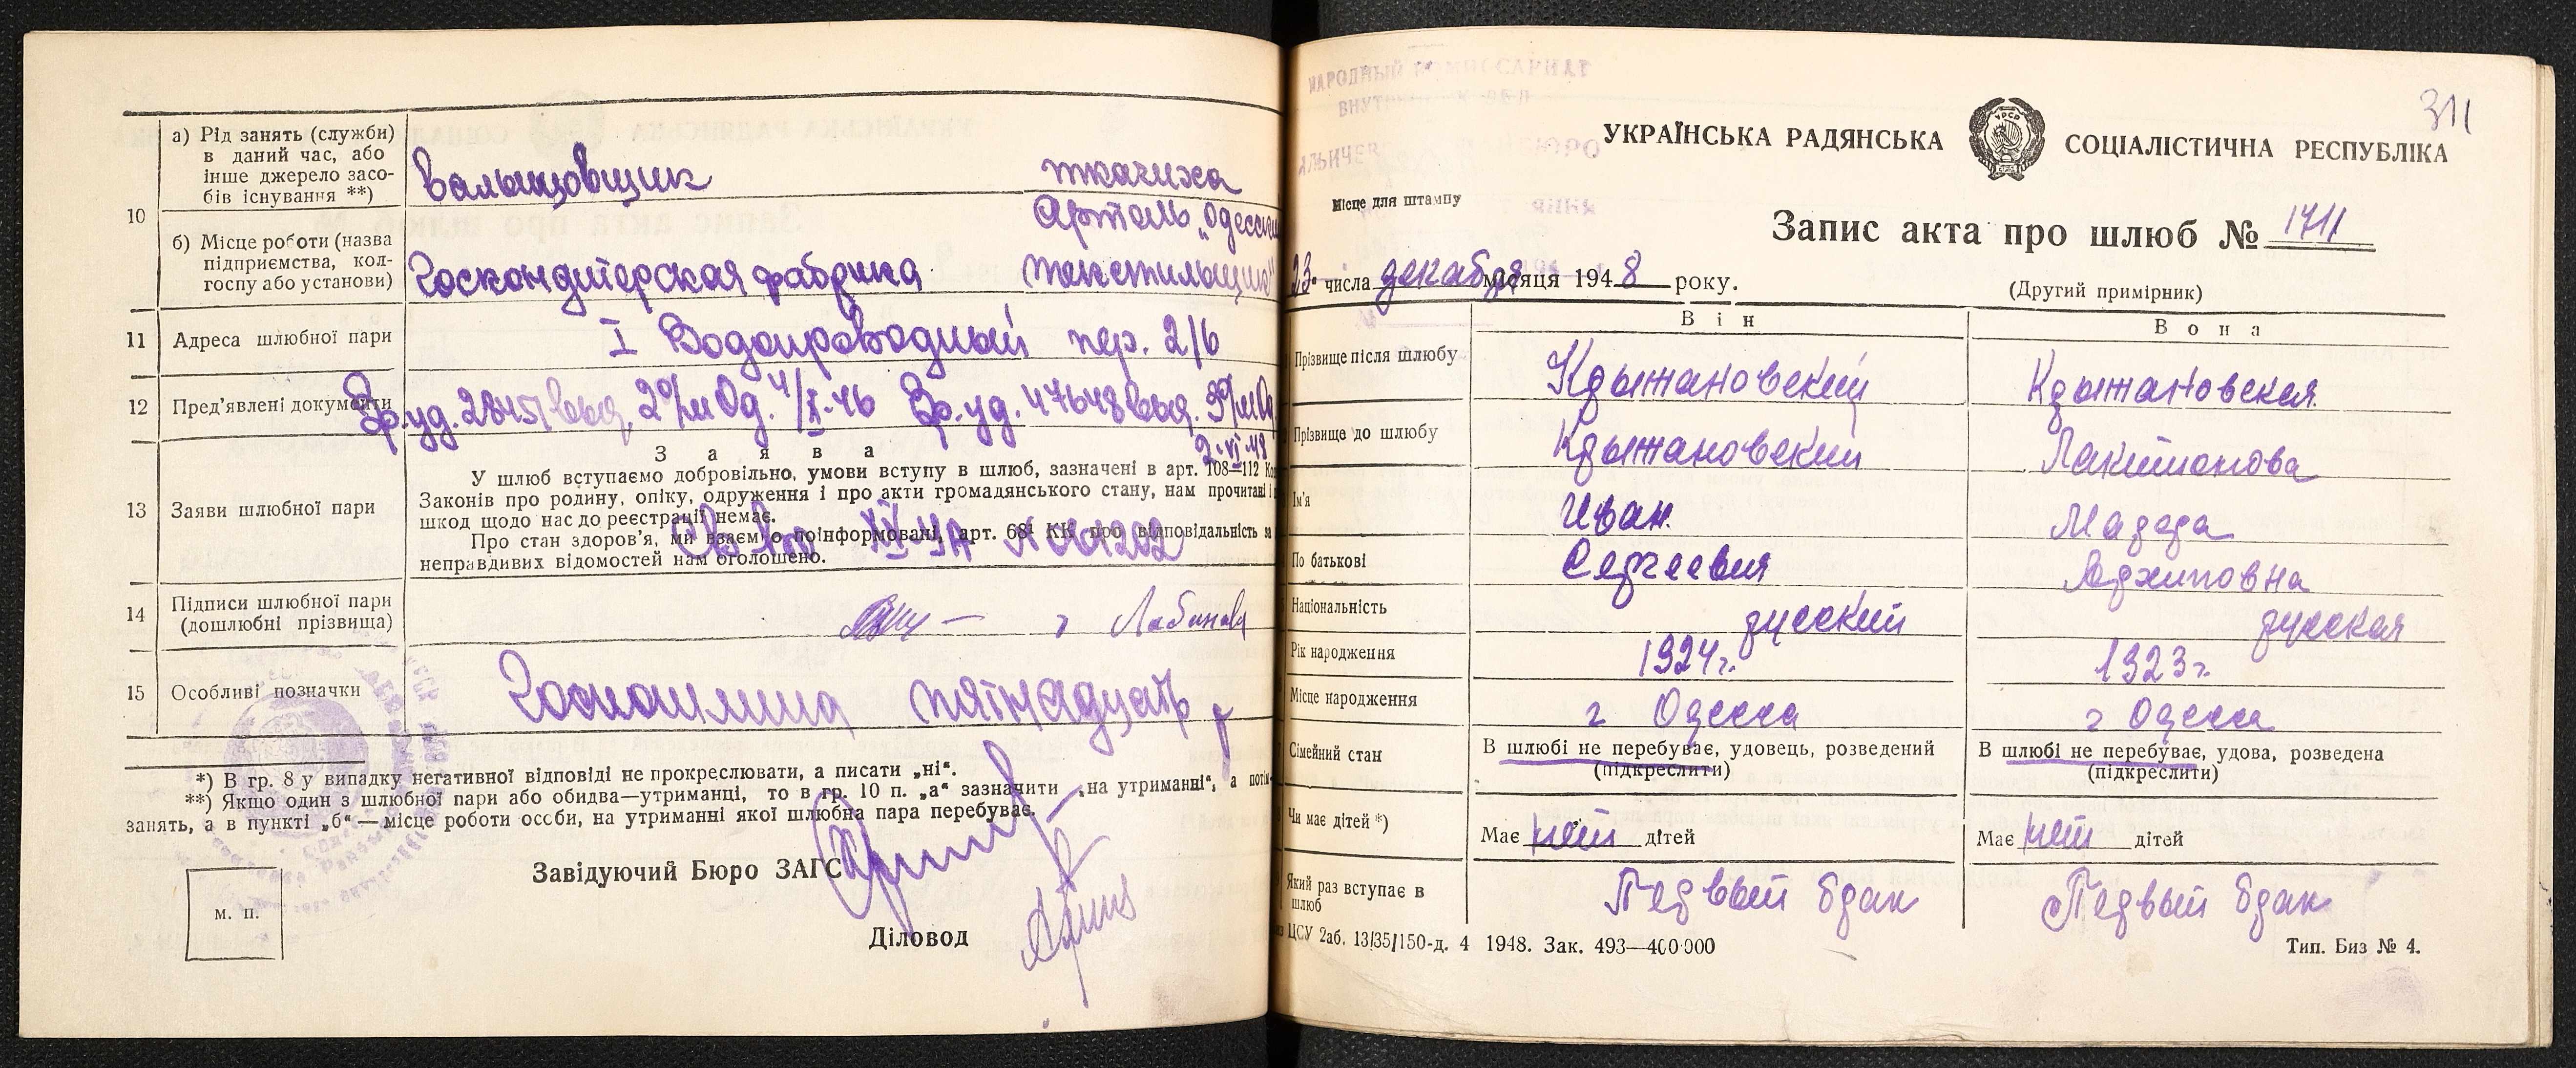 а) Рід занять (служби)
в даний час, або
інше джерело засо-
бів існування **)
Вальцовщик
ткачиха
10
б) Місце роботи (назва
підприємства, кол-
госпу або установи)
Госкондитерская фабрика
Артель „Одесский
текстильщик"
11 Адреса шлюбної пари
I Водопроводный пер. 2/6
12 Пред'явлені документи
Вр.уд. 28457 выд. 2 о/м Од. 4/X-46 Вр.уд. 47648 выд. 9 о/м Од.
2-VI 48
13 Заяви шлюбної пари
З а я в а
У шлюб вступаємо добровільно, умови вступу в шлюб, зазначені в арт. 108—112
Законів про родину, опіку, одруження і про акти громадянського стану, нам прочитані і
шкод щодо нас до реєстрації немає.
Про стан здоров'я, ми взаємно поінформовані, арт. 68¹ КК про відповідальність за
неправдивих відомостей нам оголошено.
14 Підписи шлюбної пари
(дошлюбні прізвища)
15 Особливі позначки
Госпошлина пятнадцать р
*) В гр. 8 у випадку негативної відповіді не прокреслювати, а писати „ні“.
**) Якщо один з шлюбної пари або обидва—утриманці, то в гр. 10 п. „а“ зазначити „на утриманні“, а потім
занять, а в пункті „б“ — місце роботи особи, на утриманні якої шлюбна пара перебуває.
Завідуючий Бюро ЗАГС
м. п.
Діловод
311
НАРОДНЫЙ КОМИССАРИАТ
УКРАЇНСЬКА РАДЯНСЬКА СОЦІАЛІСТИЧНА РЕСПУБЛІКА
УРСР
Місце для штампу
Запис акта про шлюб № 1711
23 числа декабря місяця 1948 року.
(Другий примірник)
Він Вона
Прізвище після шлюбу Крыжановский Крыжановская
Прізвище до шлюбу Крыжановский
Ім'я Иван
По батькові Сергеевич Архиповна
Національність русский русская
Рік народження 1924 г. 1923 г.
Місце народження г Одесса г Одесса
Сімейний стан В шлюбі не перебуває, удовець, розведений В шлюбі не перебуває, удова, розведена
(підкреслити) (підкреслити)
Чи має дітей *) Має нет дітей Має нет дітей
Який раз вступає в
шлюб
Первый брак Первый брак
ЦСУ 2аб. 13/35/150-д. 4 1948. Зак. 493—400000 Тип. Биз № 4.